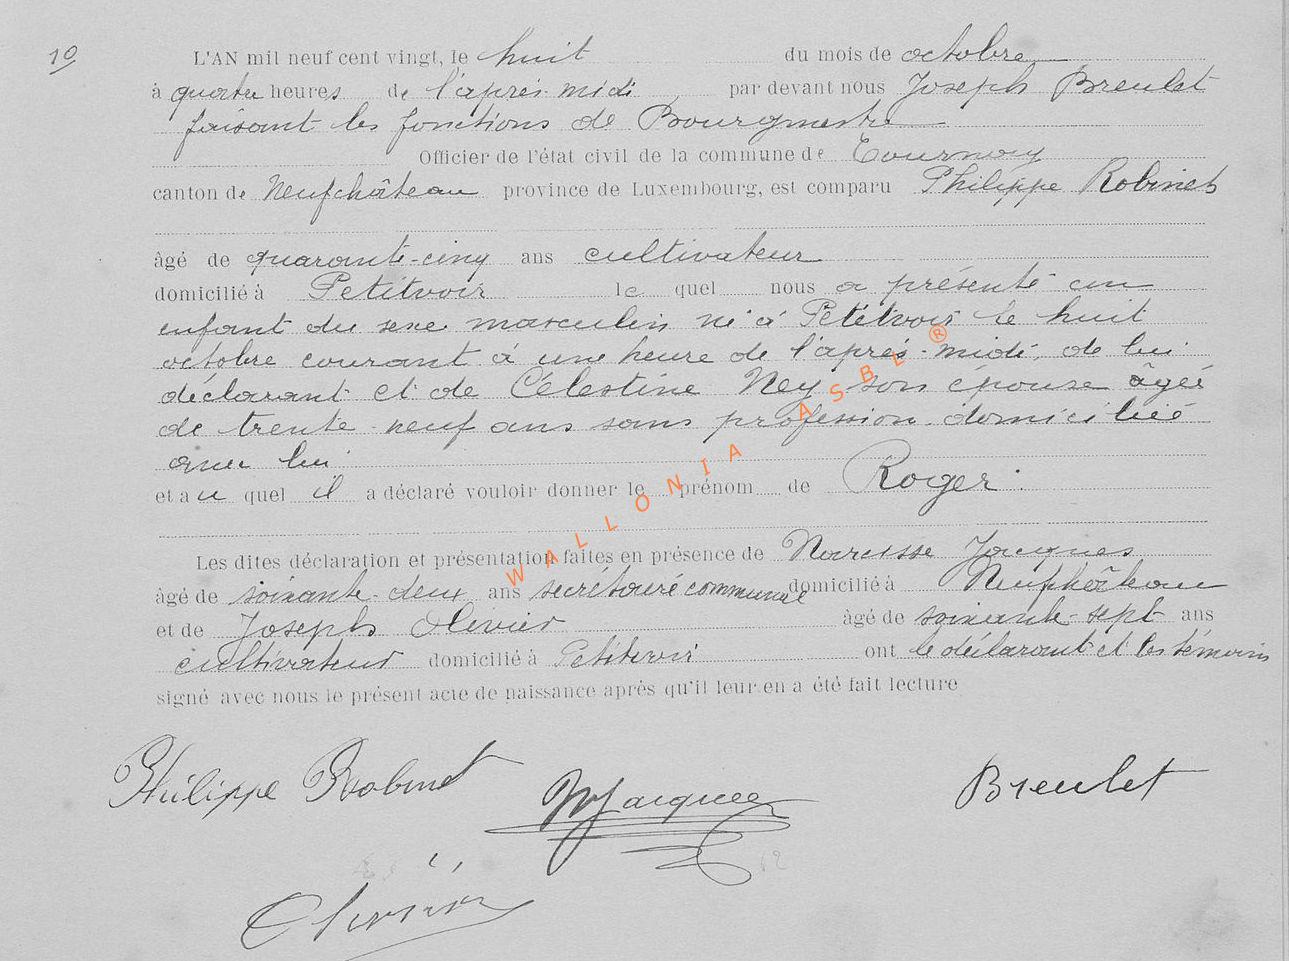 10
L'AN mil neuf cent vingt, le huit du mois de octobre
à quatre heures de l'après midi par devant nous Joseph Breulet
faisant les fonctions de Bourgmestre
Officier de l'état civil de la commune de Tournay
canton de Neufchâteau province de Luxembourg, est comparu Philippe Robinet
âgé de quarante-cinq ans cultivateur
domicilié à Petitvoir le quel nous a présenté un
enfant du sexe masculin né à Petitvoir le huit
octobre courant à une heure de l'après-midi, de lui
déclarant et de Célestine Ney son épouse âgée
de trente-neuf ans sans profession domiciliée
avec lui
et au quel il a déclaré vouloir donner le prénom de Roger.
Les dites déclaration et présentation faites en présence de Narcisse Jacques
âgé de soixante-deux ans secrétaire communal domicilié à Neufchâteau
et de Joseph Olivier âgé de soixante-sept ans
cultivateur domicilié à Petitvoir ont le déclarant et les témoins
signé avec nous le présent acte de naissance après qu'il leur en a été fait lecture
Philippe Robinet NJacques Breulet
Olivier
WALLONIA ASBL ®